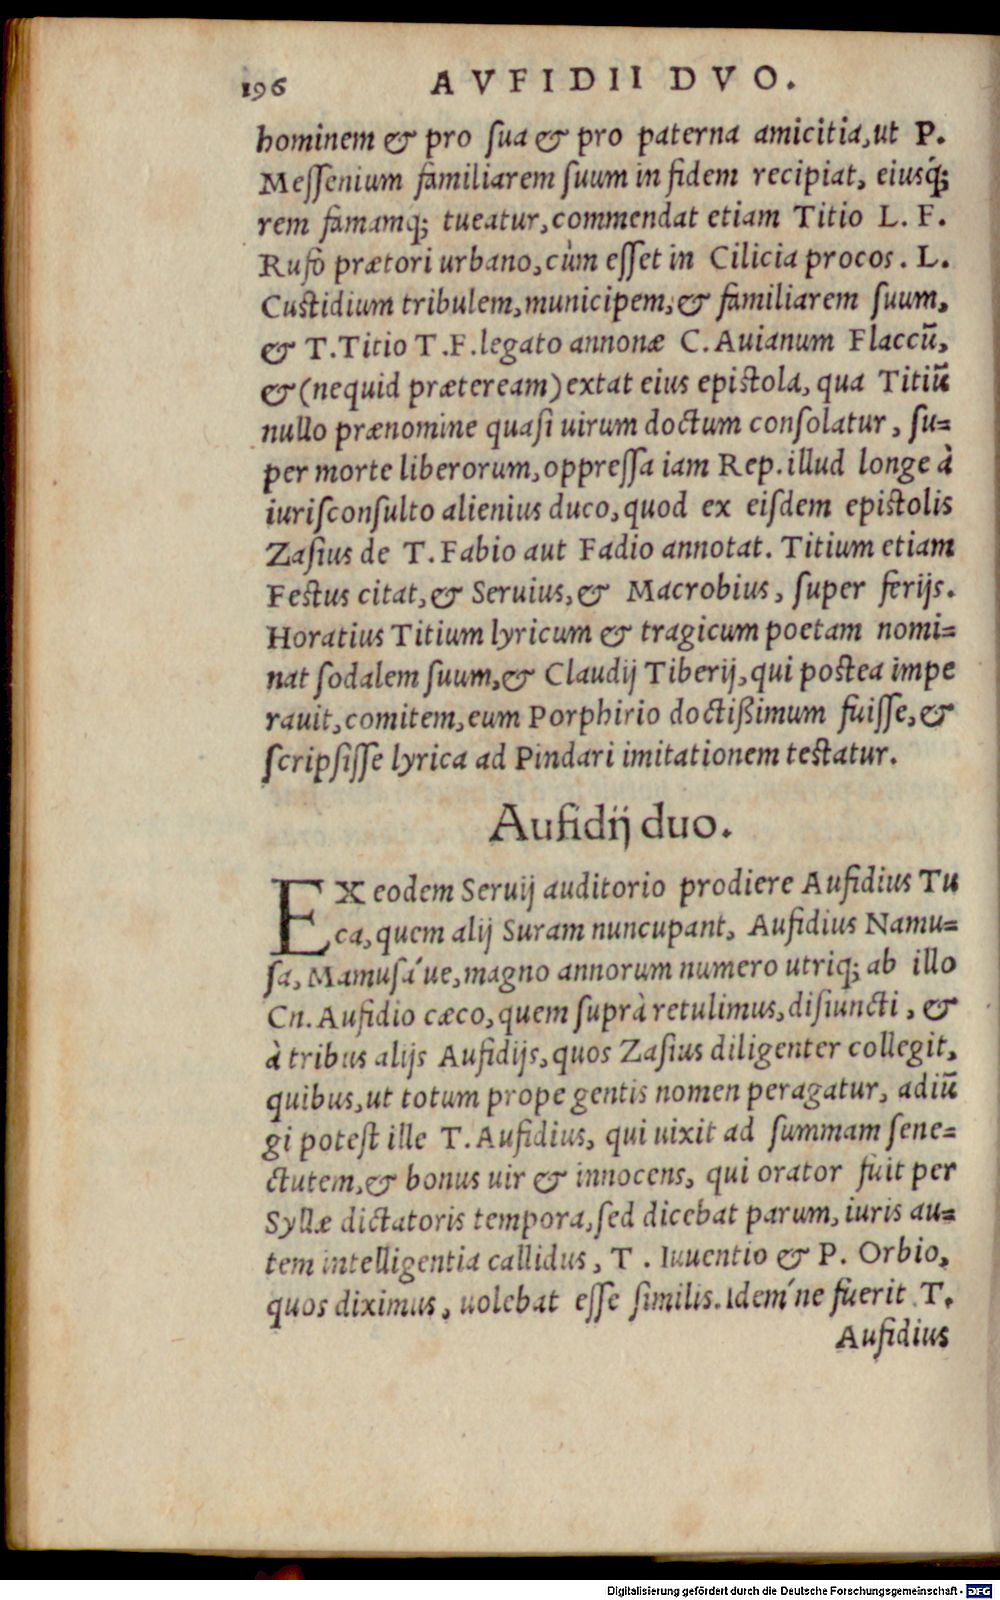 196 AVFIDII DVO.
hominem & pro ſua & pro paterna amicitia, ut P.
Meſſenium familiarem ſuum in fidem recipiat, eiusq́;
rem famamq; tueatur, commendat etiam Titio L. F.
Rufo prætori urbano, cùm eſſet in Cilicia procos. L.
Custidium tribulem, municipem, & familiarem ſuum,
& T. Titio T. F. legato annonæ C. Auianum Flaccũ,
& (nequid præteream) extat eius epistola, qua Titiũ
nullo prænomine quaſi uirum doctum conſolatur, ſu=
per morte liberorum, oppreſſa iam Rep. illud longe à
iuriſconſulto alienius duco, quod ex eiſdem epistolis
Zaſius de T. Fabio aut Fadio annotat. Titium etiam
Festus citat, & Seruius, & Macrobius, ſuper ferijs.
Horatius Titium lyricum & tragicum poetam nomi=
nat ſodalem ſuum, & Claudij Tiberij, qui postea impe
rauit, comitem, eum Porphirio doctißimum fuiſſe, &
ſcripſiſſe lyrica ad Pindari imitationem testatur.
Aufidij duo.
EX eodem Seruij auditorio prodiere Aufidius Tu
ca, quem alij Suram nuncupant, Aufidius Namu=
ſa, Mamuſá ue, magno annorum numero utriq; ab illo
Cn. Aufidio cæco, quem ſuprà retulimus, diſiuncti, &
à tribus alijs Aufidijs, quos Zaſius diligenter collegit,
quibus, ut totum prope gentis nomen peragatur, adiũ
gi poteſt ille T. Aufidius, qui uixit ad ſummam ſene=
ctutem, & bonus uir & innocens, qui orator fuit per
Syllæ dictatoris tempora, ſed dicebat parum, iuris au=
tem intelligentia callidus, T. Iuuentio & P. Orbio,
quos diximus, uolebat eſſe ſimilis. Idemʹne fuerit T.
Aufidius
Digitalisierung gefördert durch die Deutsche Forschungsgemeinschaft - DFG